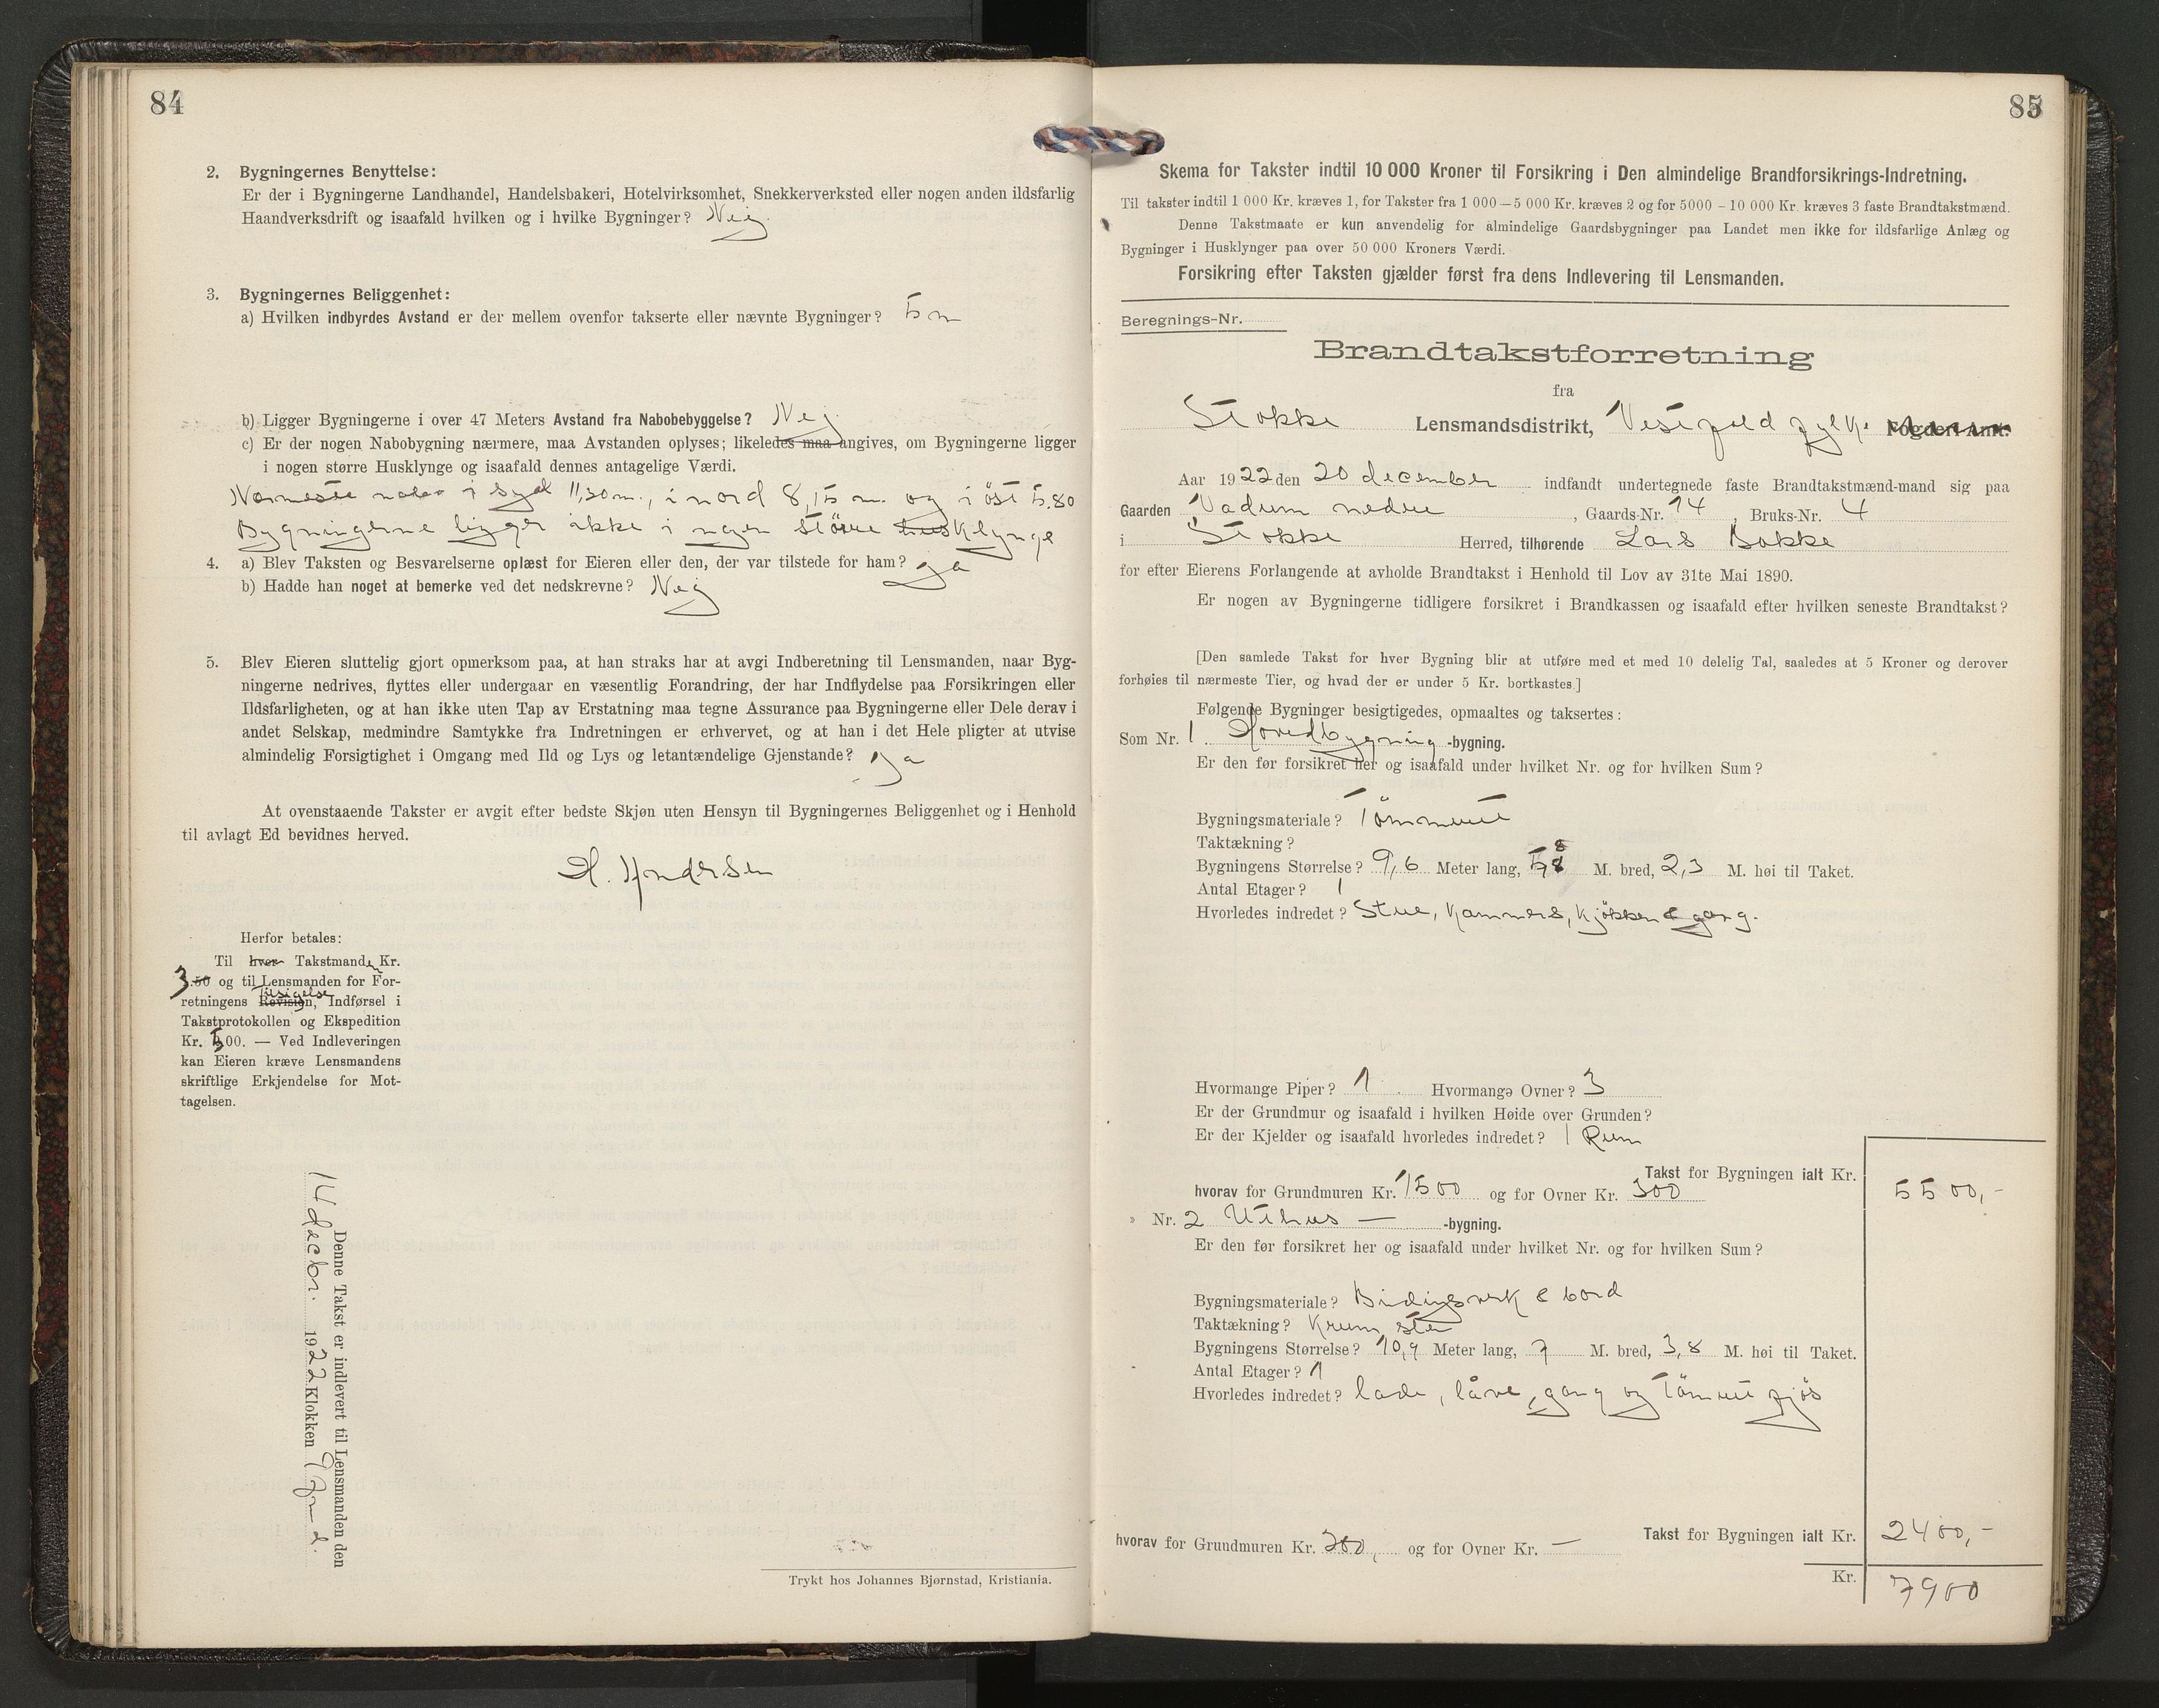 84
2. Bygningernes Benyttelse:
Er der i Bygningerne Landhandel, Handelsbakeri, Hotelvirksomhet, Snekkerverksted eller nogen anden ildsfarlig
Haandverksdrift og isaafald hvilken og i hvilke Bygninger? Nei
3. Bygningernes Beliggenhet:
a) Hvilken indbyrdes Avstand er der mellem ovenfor takserte eller nævnte Bygninger? 5 m
b) Ligger Bygningerne i over 47 Meters Avstand fra Nabobebyggelse? Nej
c) Er der nogen Nabobygning nærmere, maa Avstanden oplyses; likeledes maa angives, om Bygningerne ligger
i nogen større Husklynge og isaafald dennes antagelige Værdi.
Nærmeste nabo i syd 11,30 m., i nord 8,15 m. og i öst 5.80
Bygningerne ligger ikke i nogen större husklynge
4. a) Blev Taksten og Besvarelserne oplæst for Eieren eller den, der var tilstede for ham? Ja
b) Hadde han noget at bemerke ved det nedskrevne? Nej
5. Blev Eieren sluttelig gjort opmerksom paa, at han straks har at avgi Indberetning til Lensmanden, naar Byg-
ningerne nedrives, flyttes eller undergaar en væsentlig Forandring, der har Indflydelse paa Forsikringen eller
Ildsfarligheten, og at han ikke uten Tap av Erstatning maa tegne Assurance paa Bygningerne eller Dele derav i
andet Selskap, medmindre Samtykke fra Indretningen er erhvervet, og at han i det Hele pligter at utvise
almindelig Forsigtighet i Omgang med Ild og Lys og letantændelige Gjenstande? Ja
At ovenstaaende Takster er avgit efter bedste Skjøn uten Hensyn til Bygningernes Beliggenhet og i Henhold
til avlagt Ed bevidnes herved.
H. Andersen
Herfor betales:
Til hver Takstmanden Kr.
3.50 og til Lensmanden for For-
retningens Revision, Tilsigelse Indførsel i
Takstprotokollen og Ekspedition
Kr. 5,00. — Ved Indleveringen
kan Eieren kræve Lensmandens
skriftlige Erkjendelse for Mot-
tagelsen.
Denne Takst er indlevert til Lensmanden den
14 decbr. 1922 Klokken 9 fmd.
Trykt hos Johannes Bjørnstad, Kristiania.
85
Skema for Takster indtil 10 000 Kroner til Forsikring i Den almindelige Brandforsikrings-Indretning.
Til takster indtil 1 000 Kr. kræves 1, for Takster fra 1 000 — 5 000 Kr. kræves 2 og for 5000 – 10 000 Kr. kræves 3 faste Brandtakstmænd.
Denne Takstmaate er kun anvendelig for almindelige Gaardsbygninger paa Landet men ikke for ildsfarlige Anlæg og
Bygninger i Husklynger paa over 50 000 Kroners Værdi.
Forsikring efter Taksten gjælder først fra dens Indlevering til Lensmanden.
Beregnings-Nr.
Brandtakstforretning
fra
Stokke Lensmandsdistrikt, Vestfold fylke Fogderi Amt.
Aar 1922 den 20 december indfandt undertegnede faste Brandtakstmænd-mand sig paa
Gaarden Vadum nedre, Gaards-Nr. 14, Bruks-Nr. 4
i Stokke Herred, tilhørende Lars Bakke
for efter Eierens Forlangende at avholde Brandtakst i Henhold til Lov av 31te Mai 1890.
Er nogen av Bygningerne tidligere forsikret i Brandkassen og isaafald efter hvilken seneste Brandtakst?
[Den samlede Takst for hver Bygning blir at utføre med et med 10 delelig Tal, saaledes at 5 Kroner og derover
forhøies til nærmeste Tier, og hvad der er under 5 Kr. bortkastes.]
Følgende Bygninger besigtigedes, opmaaltes og taksertes:
Som Nr. 1. Hovedbygning -bygning.
Er den før forsikret her og isaafald under hvilket Nr. og for hvilken Sum?
Bygningsmateriale? Tömmeret
Taktækning?
Bygningens Størrelse? 9,6 Meter lang, 5,8 M. bred, 2,3 M. høi til Taket.
Antal Etager? 1
Hvorledes indredet? Stue, Kammers, Kjökken & gang.
Hvormange Piper? 1 Hvormange Ovner? 3
Er der Grundmur og isaafald i hvilken Høide over Grunden?
Er der Kjelder og isaafald hvorledes indredet? 1 Rum
Takst for Bygningen ialt Kr. 5500,-
hvorav for Grundmuren Kr. 1500 og for Ovner Kr. 300
» Nr. 2 Uthus — -bygning.
Er den før forsikret her og isaafald under hvilket Nr. og for hvilken Sum?
Bygningsmateriale? Bindingsverk & bord
Taktækning? Krum sten
Bygningens Størrelse? 10,9 Meter lang, 7 M. bred, 3,8 M. høi til Taket.
Antal Etager? 1
Hvorledes indredet? lade, låve, gang og tömret fjös
Takst for Bygningen ialt Kr. 2400,-
hvorav for Grundmuren Kr. 200, og for Ovner Kr. —
Kr. 7900